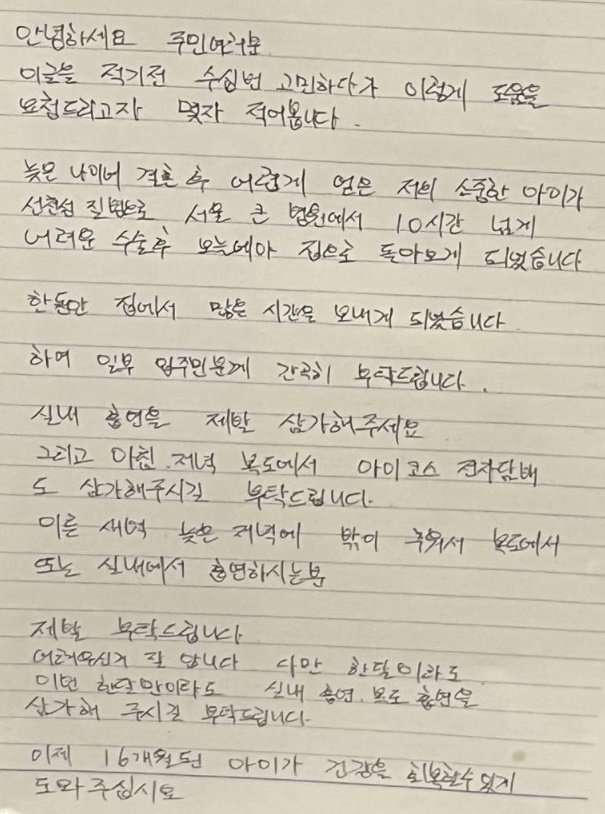 안녕하세요 주민여러분
이글을 적기전 수십번 고민하다가 이렇게 도움을
요청드리고자 몇자 적어봅니다.
늦은 나이에 결혼 후 어렵게 얻은 저희 소중한 아이가
선천성 질병으로 서울 큰 병원에서 10시간 넘게
어려운 수술후 오늘에야 집으로 돌아오게 되었습니다
한동안 집에서 많은 시간을 보내게 되었습니다
하여 일부 입주민분께 간곡히 부탁드립니다.
실내 흡연을 제발 삼가해주세요
그리고 아침.저녁 복도에서 아이코스 전자담배
도 삼가해주시길 부탁드립니다.
이른 새벽 늦은 저녁에 밖이 추워서 복도에서
또는 실내에서 흡연하시는분
제발 부탁드립니다
어려우신거 잘 압니다 다만 한달이라도
이번 한달만이라도 실내 흡연.복도 흡연을
삼가해 주시길 부탁드립니다.
이제 16개월된 아이가 건강을 회복할수있게
도와주십시요